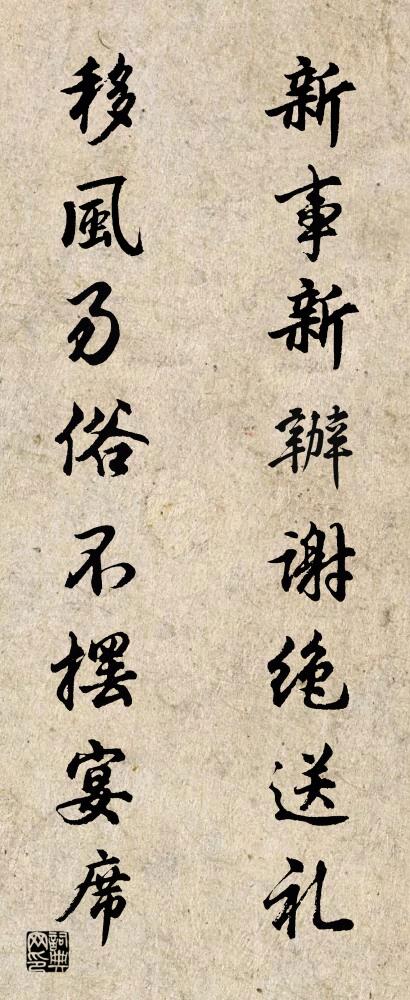 新事新辦谢绝送礼
移風易俗不摆宴席
詞典网印